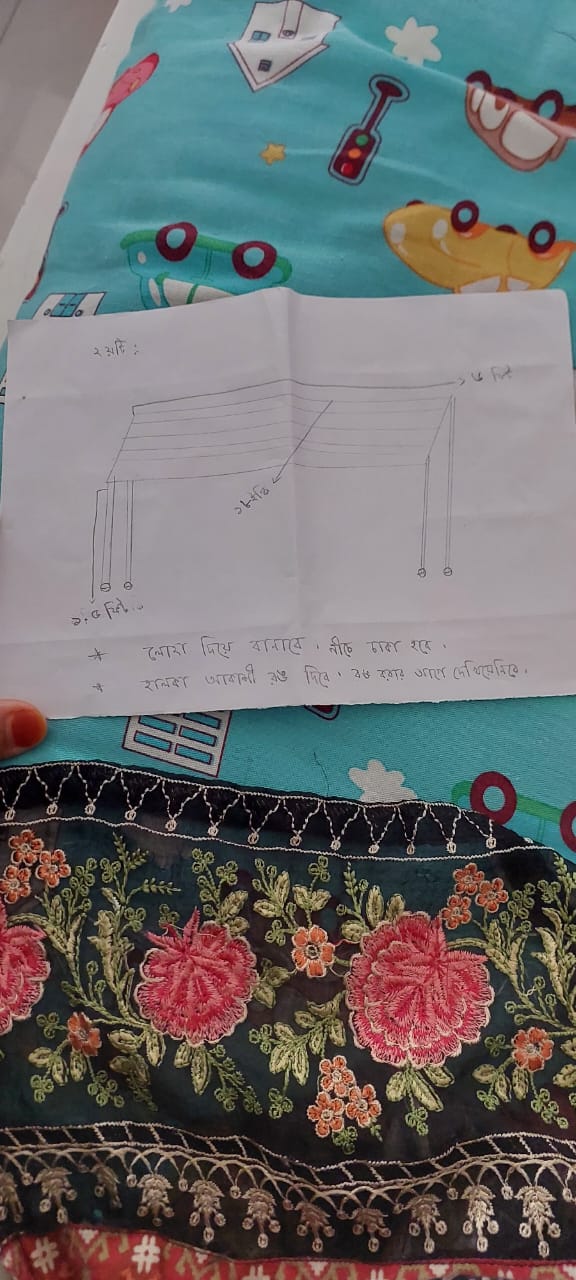 ২য়টি :
৬ ফিট
১৮ইঞ্চি
ফিট
* লোহা দিয়ে বানাবে। নীচে চাকা হবে।
* হালকা আকাশী রঙ দিবে। রঙ করার আগে দেখিয়ে নিবে।